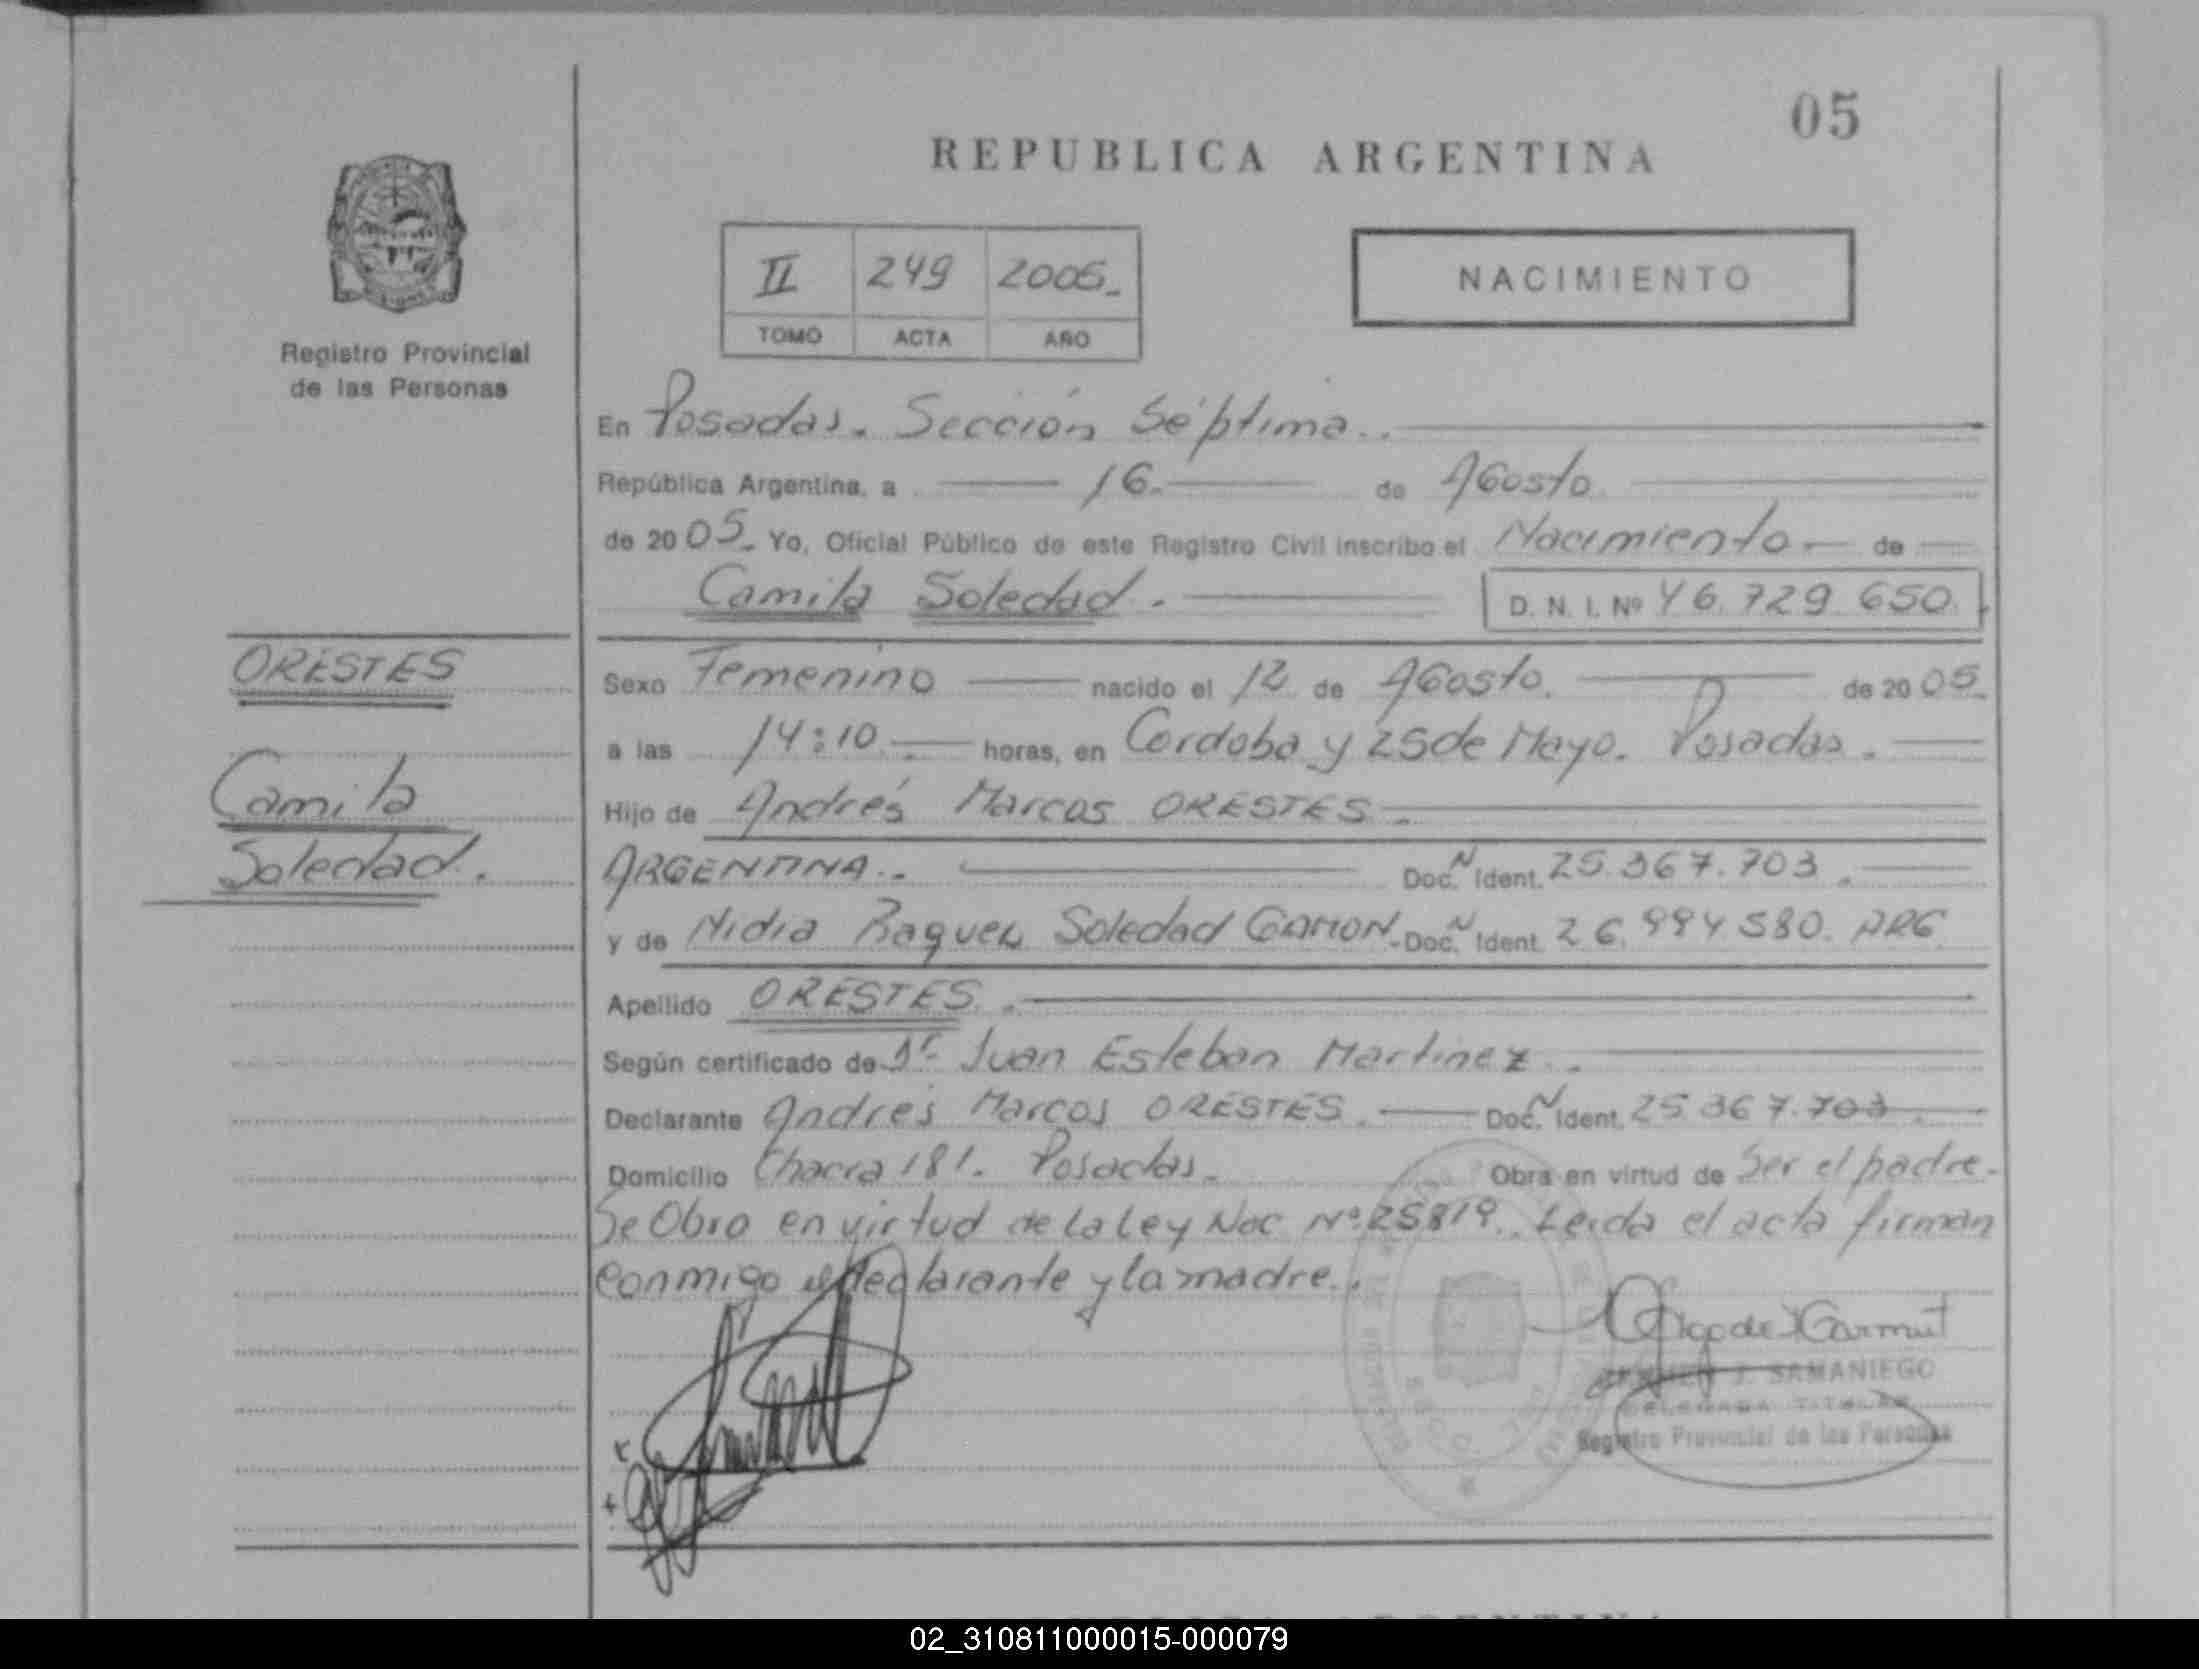 05
REPUBLICA ARGENTINA
II 249 2005.
TOMO ACTA AÑO
NACIMIENTO
Registro Provincial
de las Personas
En Posadas. Sección Séptima.
República Argentina, a 16. de Agosto
de 2005. Yo, Oficial Público de este Registro Civil inscribo el Nacimiento de
Camila Soledad. D. N. I. Nº 46.729.650.
ORESTES
Camila
Soledad.
Sexo Femenino nacido el 12 de Agosto. de 2005.
a las 14:10. horas, en Cordoba y 25 de Mayo. Posadas.
Hijo de Andrés Marcos ORESTES.
ARGENTINA. Doc. N Ident. 25.367.703.
y de Nidia Raquel Soledad GAMON. Doc. N Ident. 26.994.580. ARG
Apellido ORESTES.
Según certificado de Dr. Juan Esteban Martinez.
Declarante Andrés Marcos ORESTES. Doc. N Ident. 25.367.703.
Domicilio Chacra 181. Posadas. Obra en virtud de Ser el padre.
Se Obro en virtud de la Ley Nac Nº 25819. Leida el acta firman
conmigo el declarante y la madre.
J. SAMANIEGO
DELEGADA TITULAR
Registro Provincial de las Personas
02_310811000015-000079